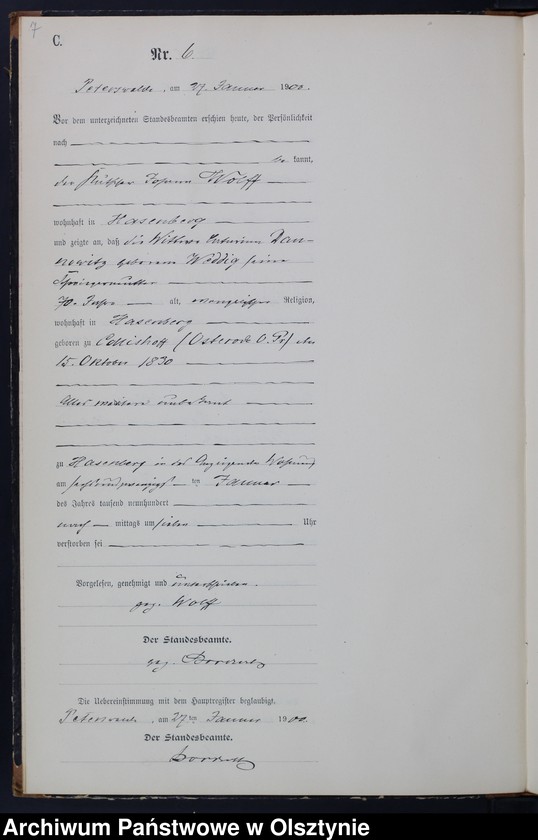 7
C.
Nr. 6
Peterswalde, am 27. Januar 1900.
Vor dem unterzeichneten Standesbeamten erschien heute, der Persönlichkeit
nach
be kannt,
der Kutscher Johann Wolff
wohnhaft in Hasenberg
und zeigte an, daß die Wittwe
geborene Weddig seine
Schwiegermutter
70. Jahre alt, evangelischer Religion,
wohnhaft in Hasenberg
geboren zu (Osterode O. Pr) den
15. Oktober 1830
Alles weitere unbekannt
zu Hasenberg in des Anzeigenden Wohnung
am sechsundzwanzigsten Januar
des Jahres tausend neunhundert
nach mittags um sieben Uhr
verstorben sei
Vorgelesen, genehmigt und unterschrieben.
gez. Wolff
Der Standesbeamte.
gez.
Die Uebereinstimmung mit dem Hauptregister beglaubigt.
Peterswalde, am 27ten Januar 1900.
Der Standesbeamte.
Archiwum Państwowe w Olsztynie